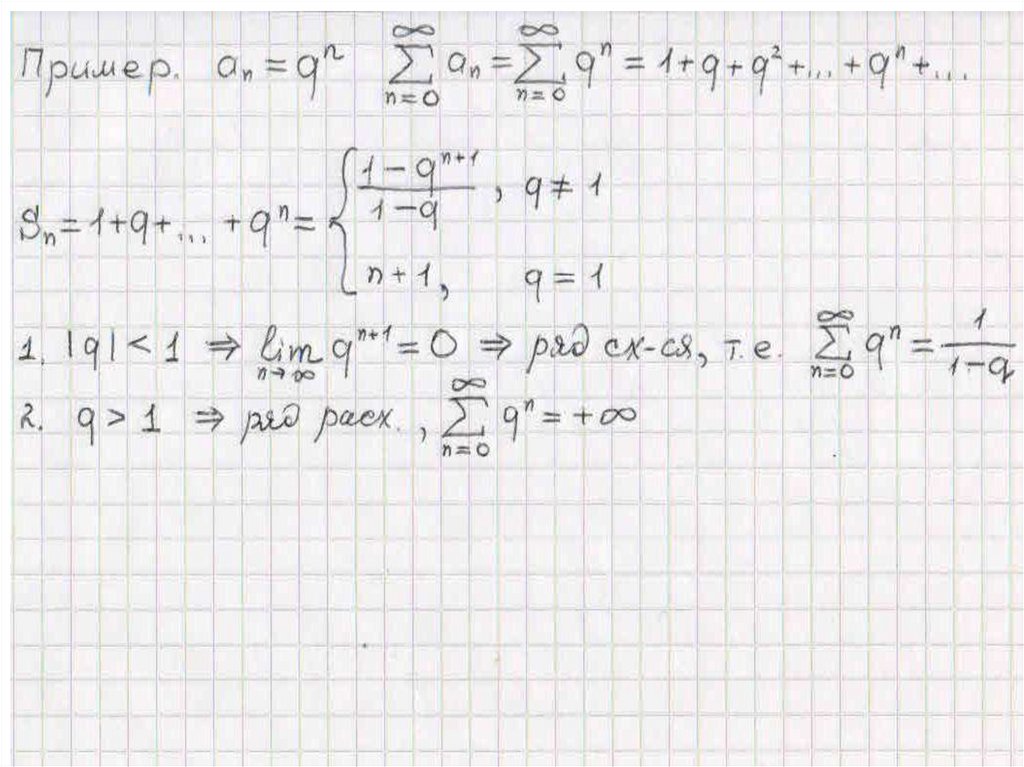 Пример. aₙ = qⁿ ∞∑n=0 aₙ = ∞∑n=0 qⁿ = 1+q+q²+...+qⁿ+...
Sₙ = 1+q+...+qⁿ = { (1-qⁿ⁺¹)/(1-q), q ≠ 1
n+1, q = 1
1. |q| < 1 ⇒ lim n→∞ qⁿ⁺¹ = 0 ⇒ ряд сх-ся, т.е. ∞∑n=0 qⁿ = 1/(1-q)
2. q > 1 ⇒ ряд расх., ∞∑n=0 qⁿ = +∞